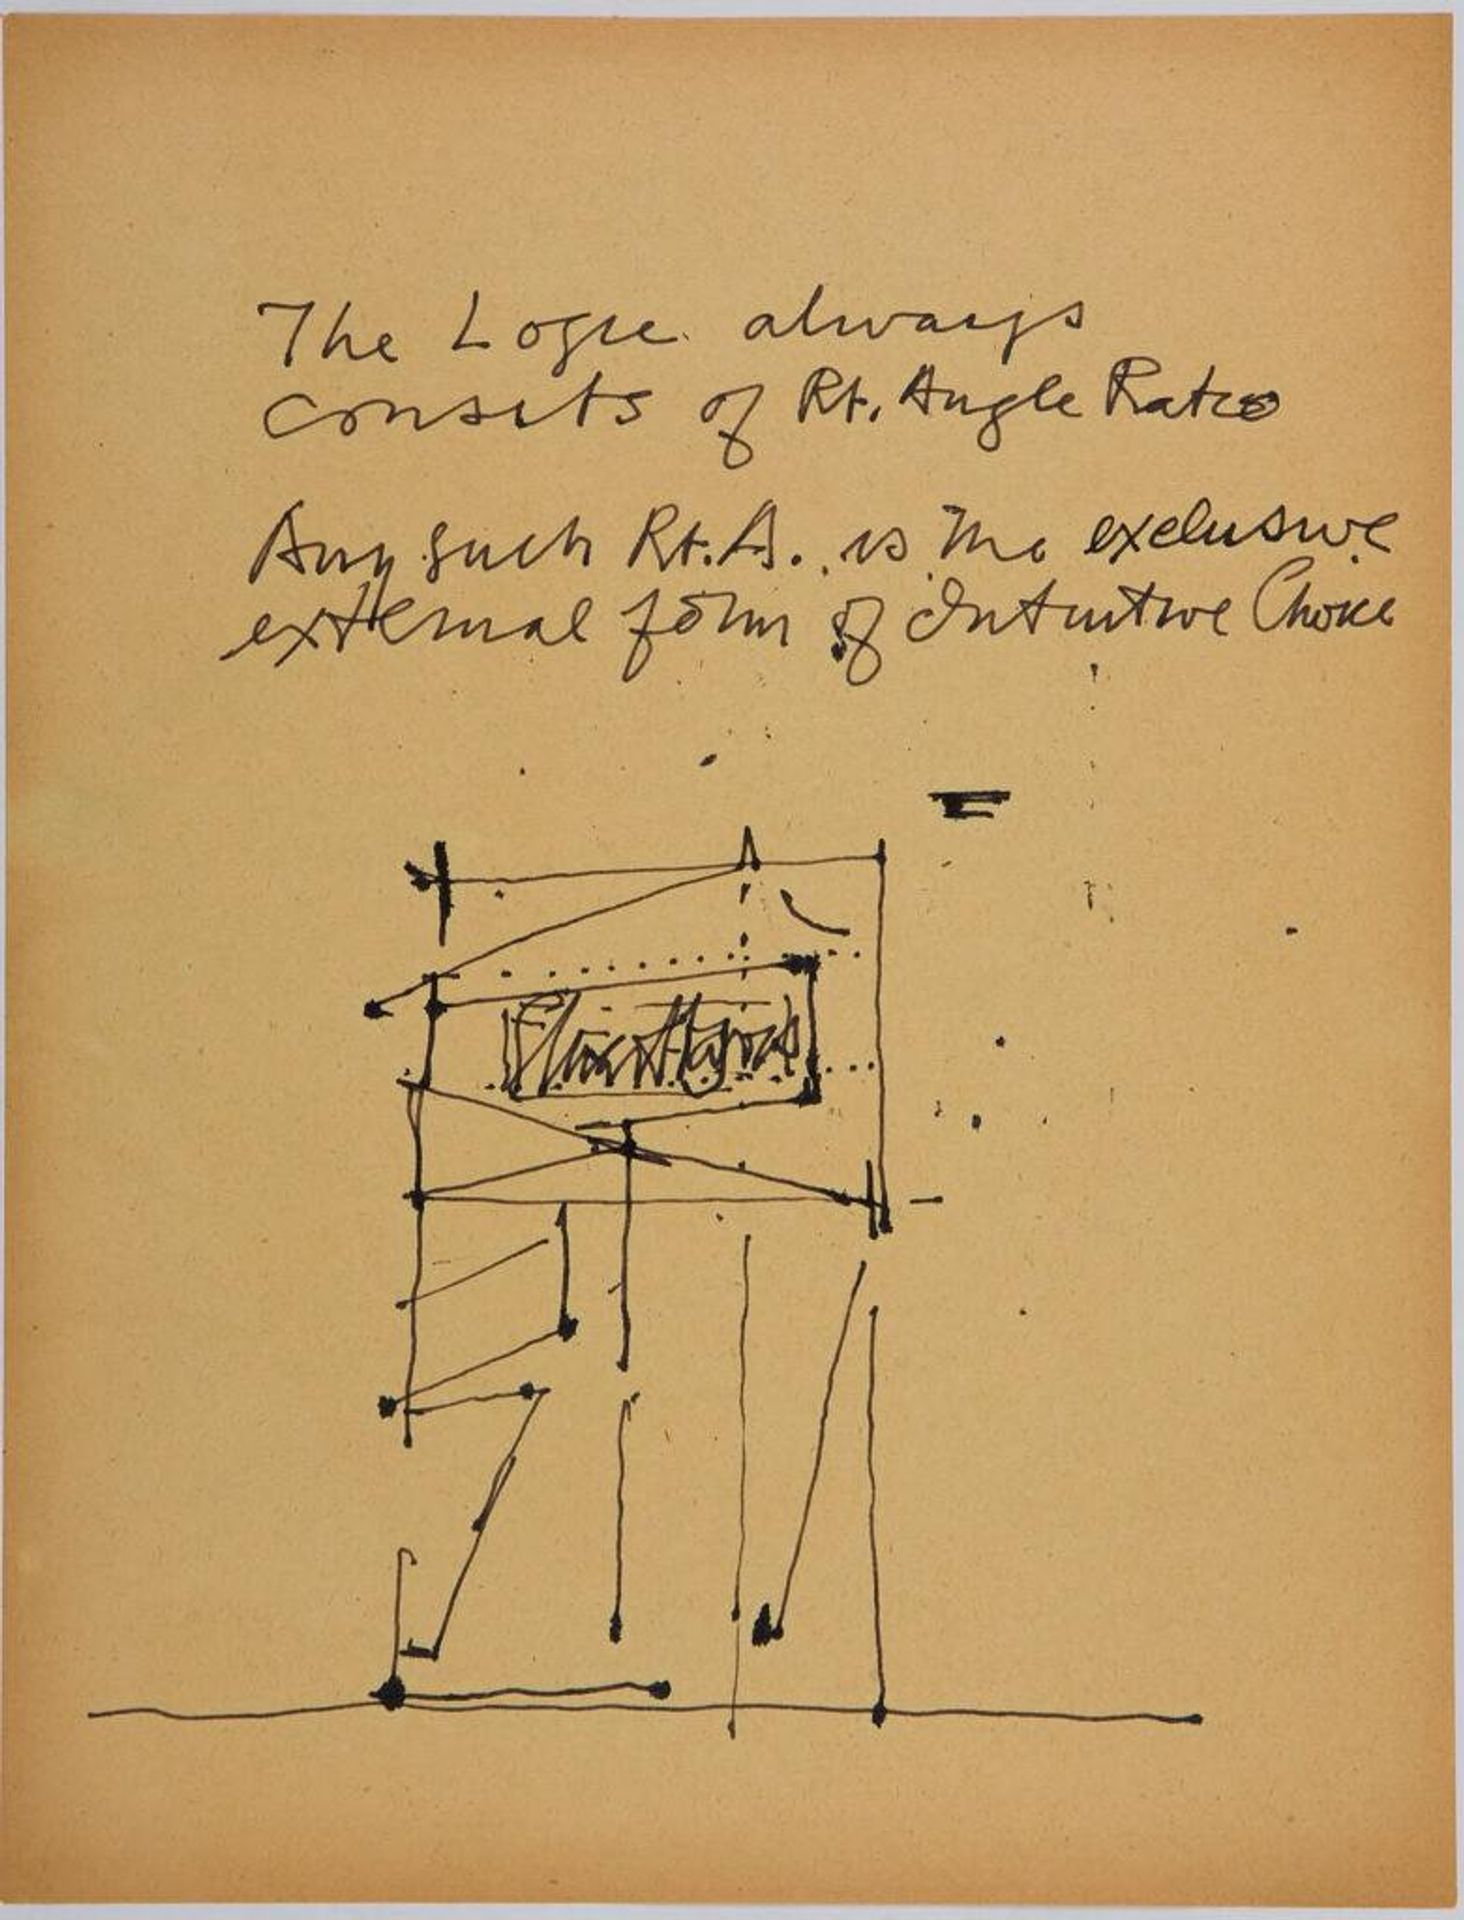 The Logic always
consists of Rt. Angle Ratio
Any such Rt. A. is the exclusive
external form of Intuitive Choice